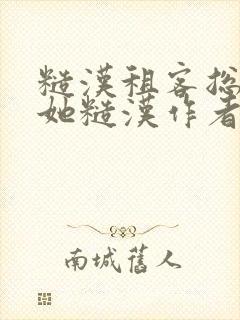 糙漢租客總
她糙漢作者
南城舊人